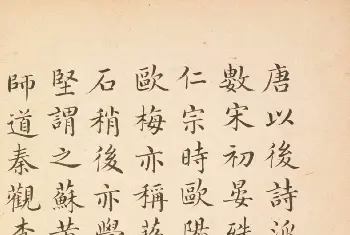 唐以後詩派
數宋初晏殊
仁宗時歐陽
歐梅亦稱蘇
石稍後亦學
堅謂之蘇黃
師道秦觀李